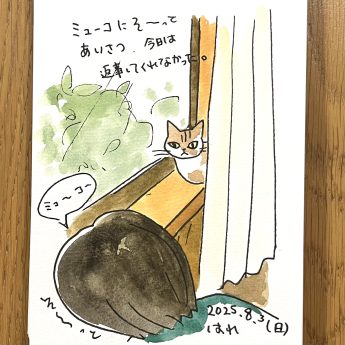 ミューコにそ〜って
あいさつ、今日は
返事してくれなかった。
ミュ〜コ〜
そ〜〜っと
2025.8.3(日)
はれ